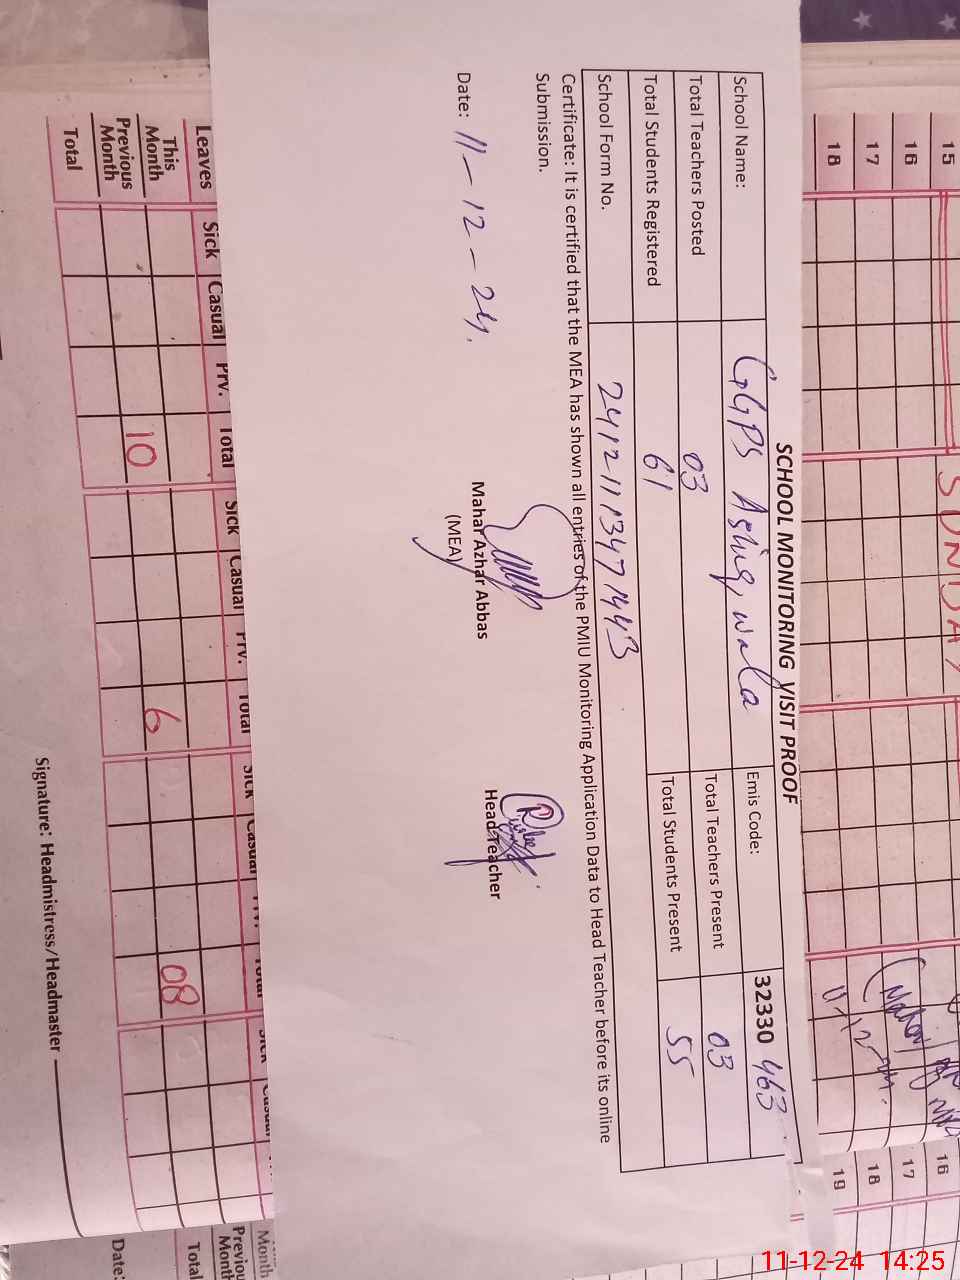 SCHOOL MONITORING VISIT PROOF
School Name: GGPS Ashiq wala Emis Code: 32330 463
Total Teachers Posted 03 Total Teachers Present 03
Total Students Registered 61 Total Students Present 55
School Form No. 241211134714443
Certificate: It is certified that the MEA has shown all entries of the PMIU Monitoring Application Data to Head Teacher before its online
Submission.
Date: 11-12-24.
Mahar Azhar Abbas
(MEA)
Head Teacher
15
16
17
18
SUNDAY
16
17
18
19
Leaves Sick Casual Prv. Total Sick Casual Prv. Total Sick Casual Total Sick Casual
This
Month
6 08
Previous
Month
10
Total
Month
Previous
Month
Total
Signature: Headmistress/Headmaster
Date:
11-12-24 14:25